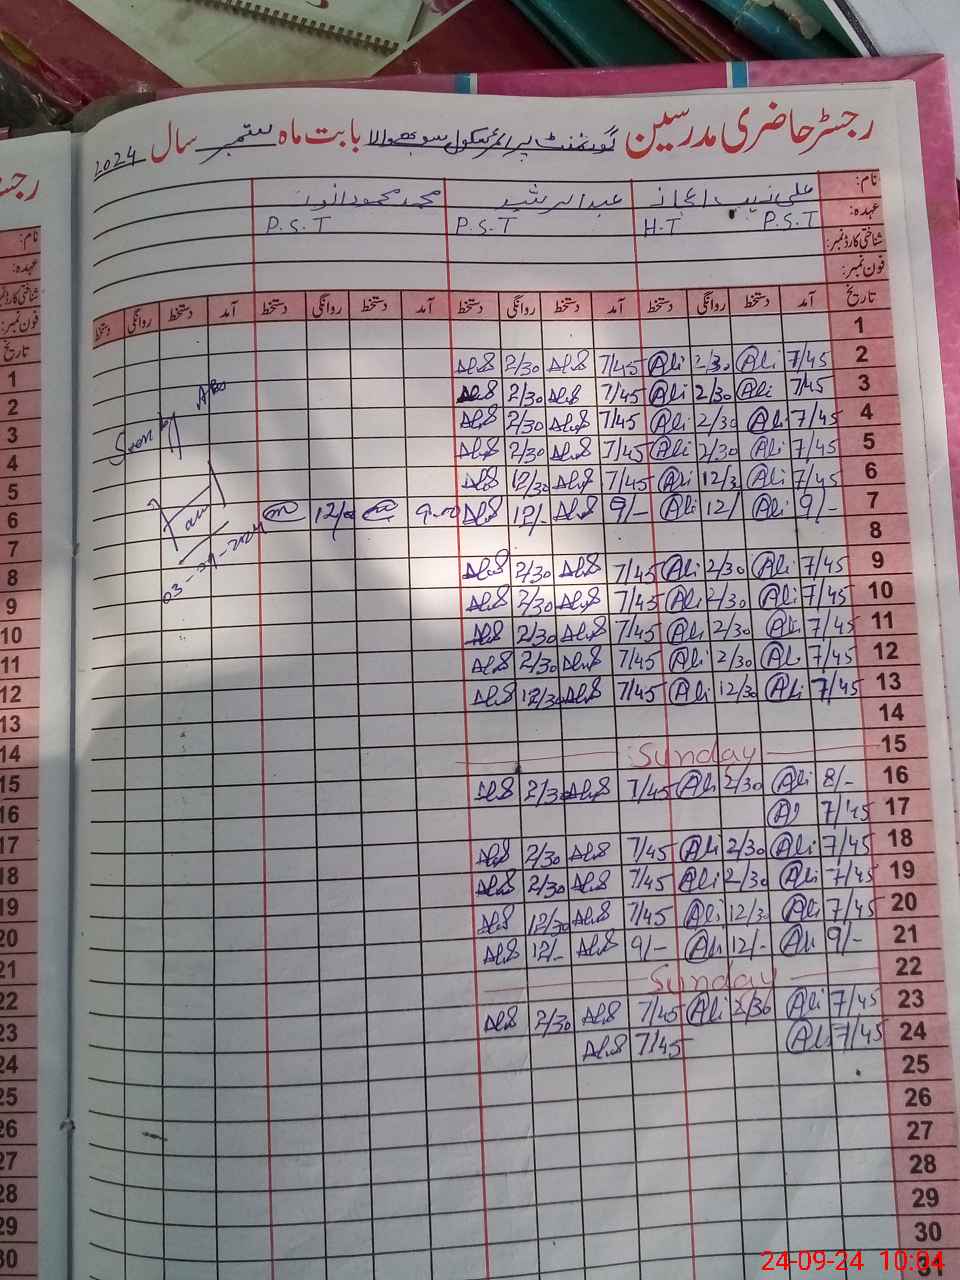 رجسٹر حاضری مدرسین گورنمنٹ پرائمری سکول سوبھے والا بابت ماہ ستمبر سال 2024
نام: علی زیب اعجاز عبدالرشید محمد محمود انور
عہدہ: P.S.T H.T P.S.T P.S.T
شناختی کارڈ نمبر:
فون نمبر:
تاریخ آمد دستخط روانگی دستخط آمد دستخط روانگی دستخط آمد دستخط روانگی دستخط آمد دستخط روانگی دستخط
1
2 7/45 Ali 2/30 Ali 7/45 2/30
3 7/45 Ali 2/30 Ali 7/45 2/30
4 7/45 Ali 2/30 Ali 7/45 2/30
5 7/45 Ali 2/30 Ali 7/45 2/30
6 7/45 Ali 12/3 Ali 7/45 12/30
7 9/- Ali 12/ Ali 9/- 12/- 9.00
8
9 7/45 Ali 2/30 Ali 7/45 2/30
10 7/45 Ali 2/30 Ali 7/45 2/30
11 7/45 Ali 2/30 Ali 7/45 2/30
12 7/45 Ali 2/30 Ali 7/45 2/30
13 7/45 Ali 12/30 Ali 7/45 12/30
14
15 Sunday
16 8/- Ali 2/30 Ali 7/45 2/30
17 7/45
18 7/45 Ali 2/30 Ali 7/45 2/30
19 7/45 Ali 2/30 Ali 7/45 2/30
20 7/45 Ali 12/30 Ali 7/45 12/30
21 9/- Ali 12/- Ali 9/- 12/-
22 Sunday
23 7/45 Ali 2/30 Ali 7/45 2/30
24 7/45 Ali 7/45
25
26
27
28
29
30
31
Seen by
رجسٹ
نام:
عہدہ:
شناختی کارڈ نمبر
فون نمبر:
تاریخ
1
2
3
4
5
6
7
8
9
10
11
12
13
14
15
16
17
18
19
20
21
22
23
24
25
26
27
28
29
30
24-09-24 10:04